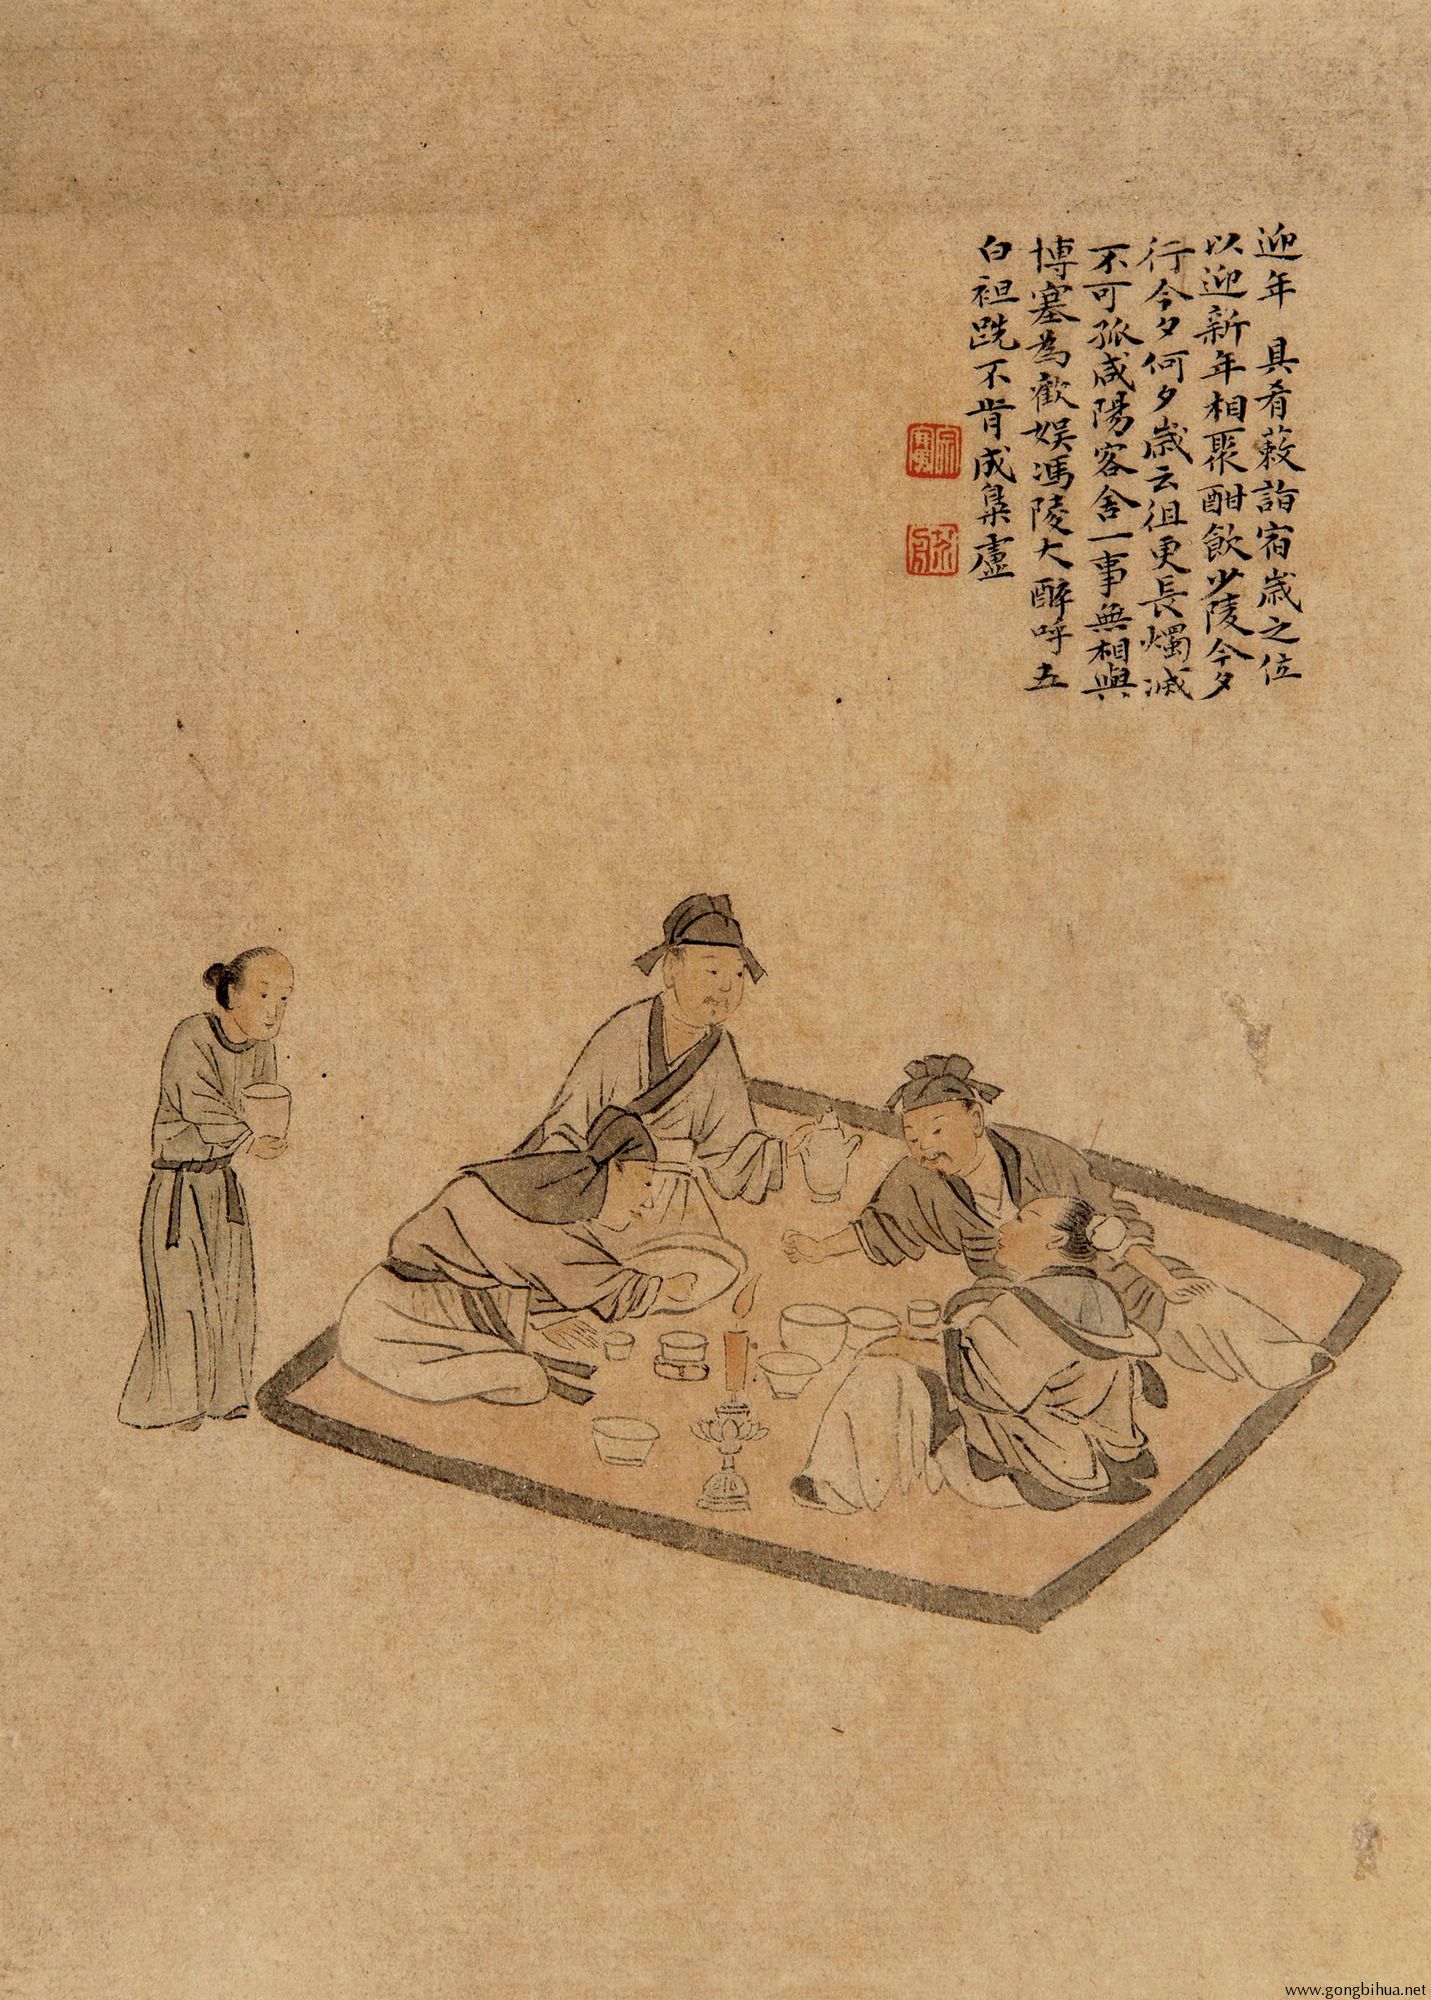 迎年　具肴蔌詣宿歲之位
以迎新年相聚酣飲少陵今夕
行今夕何夕歲云徂更長燭滅
不可孤咸陽客舍一事無相與
博塞為歡娛馮陵大醉呼五
白袒跣不肯成梟盧
www.gongbihua.net